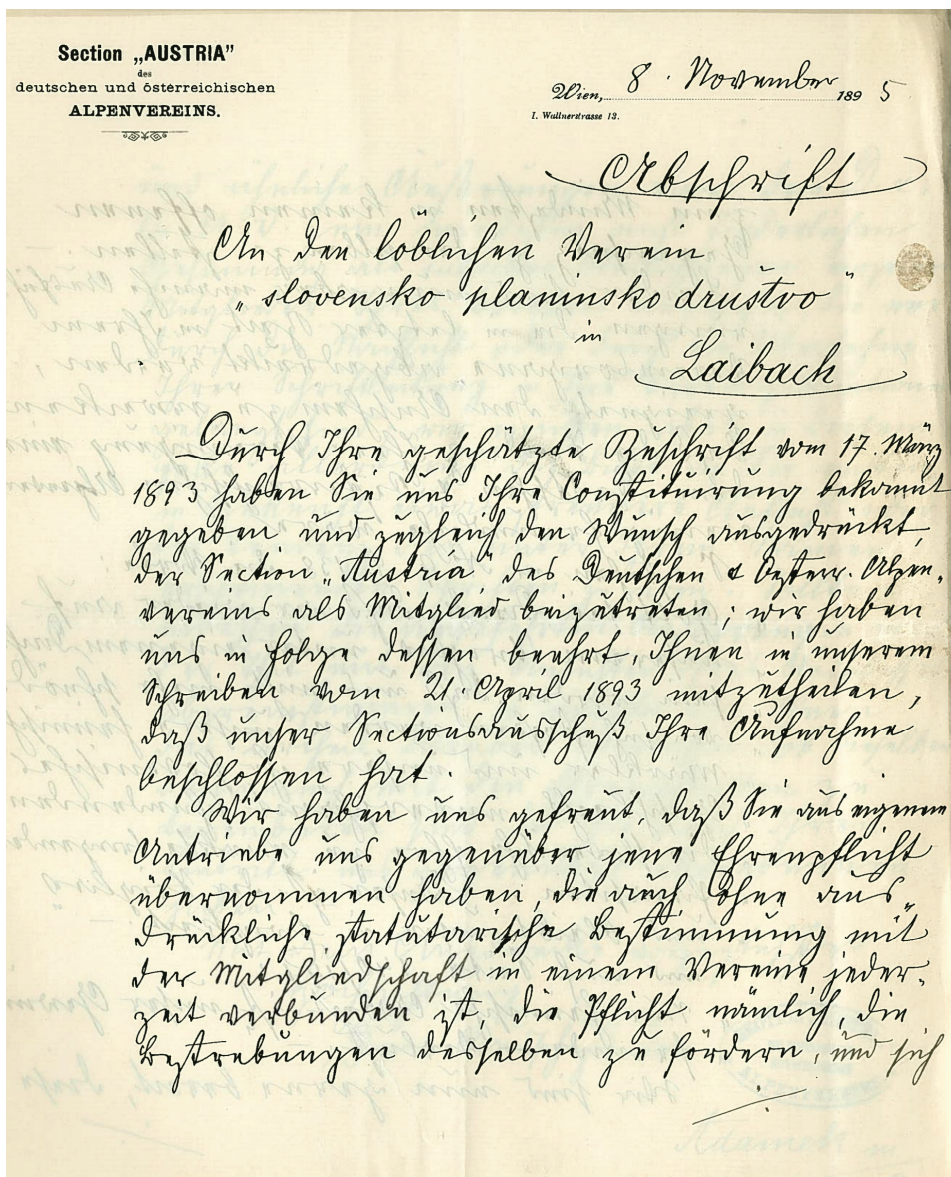 Section „AUSTRIA"
des
deutschen und österreichischen
ALPENVEREINS.
Wien, 8. November 1895
I. Wallnerstrasse 13.
Abschrift
An den löblichen Verein
„slovensko planinsko društvo"
in
Laibach
Durch Ihre geschätzte Zuschrift vom 17. März
1893 haben Sie uns Ihre Constituirung bekannt
gegeben und zugleich den Wunsch ausgedrückt,
der Section „Austria" des Deutschen & Oesterr. Alpen-
vereins als Mitglied beizutreten; wir haben
uns in Folge dessen beehrt, Ihnen in unserem
Schreiben vom 21. April 1893 mitzutheilen,
daß unser Sectionsausschuß Ihre Aufnahme
beschlossen hat.
Wir haben uns gefreut, daß Sie aus eigenem
Antriebe uns gegenüber jene Ehrenpflicht
übernommen haben, die auch ohne aus-
drückliche statutarische Bestimmung mit
der Mitgliedschaft in einem Vereine jeder-
zeit verbunden ist, die Pflicht nämlich, die
Bestrebungen desselben zu fördern, und sich